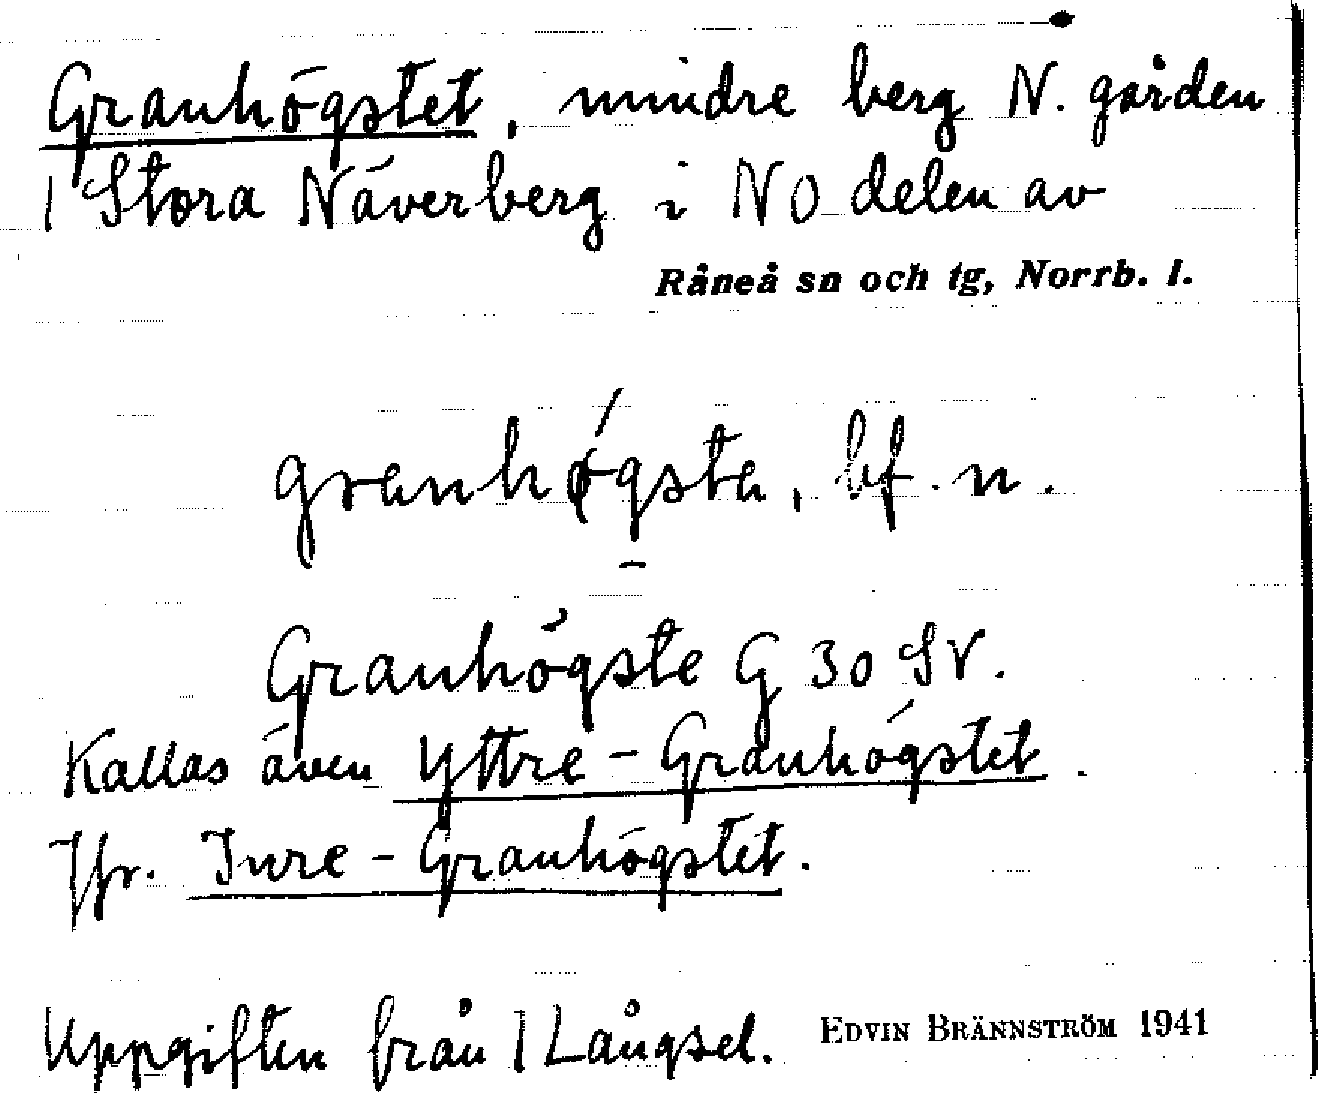 Granhögstet, mindre berg N. gården
1 Stora Näverberg i NO delen av
Råneå sn och tg, Norrb. l.
granhǿgsta, bf. n.
Granhögste G 30 SV.
Kallas även Yttre-Granhögstet.
Jfr. Inre-Granhögstet.
Uppgiften från 1 Långsel. EDVIN BRÄNNSTRÖM 1941